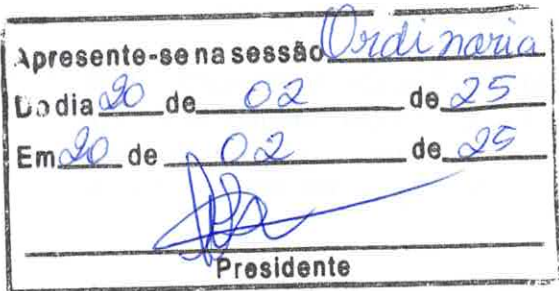 Apresente-se na sessão Ordinaria
Do dia 20 de 02 de 25
Em 20 de 02 de 25
Presidente